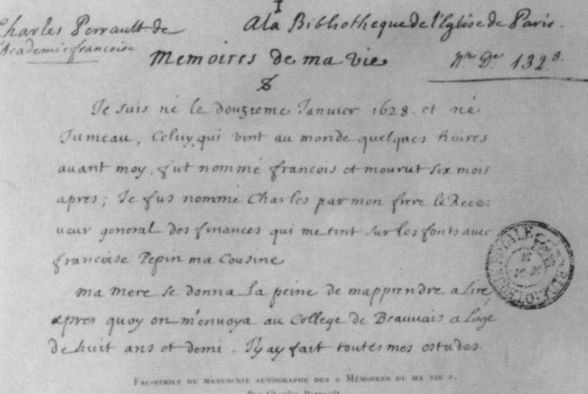 I
Charles Perrault de A la Bibliotheque de l'Eglise de Paris.
Academie francoise
Memoires de ma vie Nre De 132 8.
Je suis né le douzieme Janvier 1628. et né
Jumeau, Celuy qui vint au monde quelques heures
auant moy, fut nommé francois et mourut six mois
apres; Je fus nommé Charles par mon frere le Rece:
ueur general des finances qui me tint sur les fonts auec
francoise Pepin ma Cousine
ma mere se donna la peine de mapprendre a lire,
apres quoy on m'enuoya au College de Beauuais a lage
de huit ans et demi. J'y ay fait toutes mes estudes
FAC-SIMILE DU MANUSCRIT AUTOGRAPHE DES « MÉMOIRES DE MA VIE ».
Par Charles Perrault